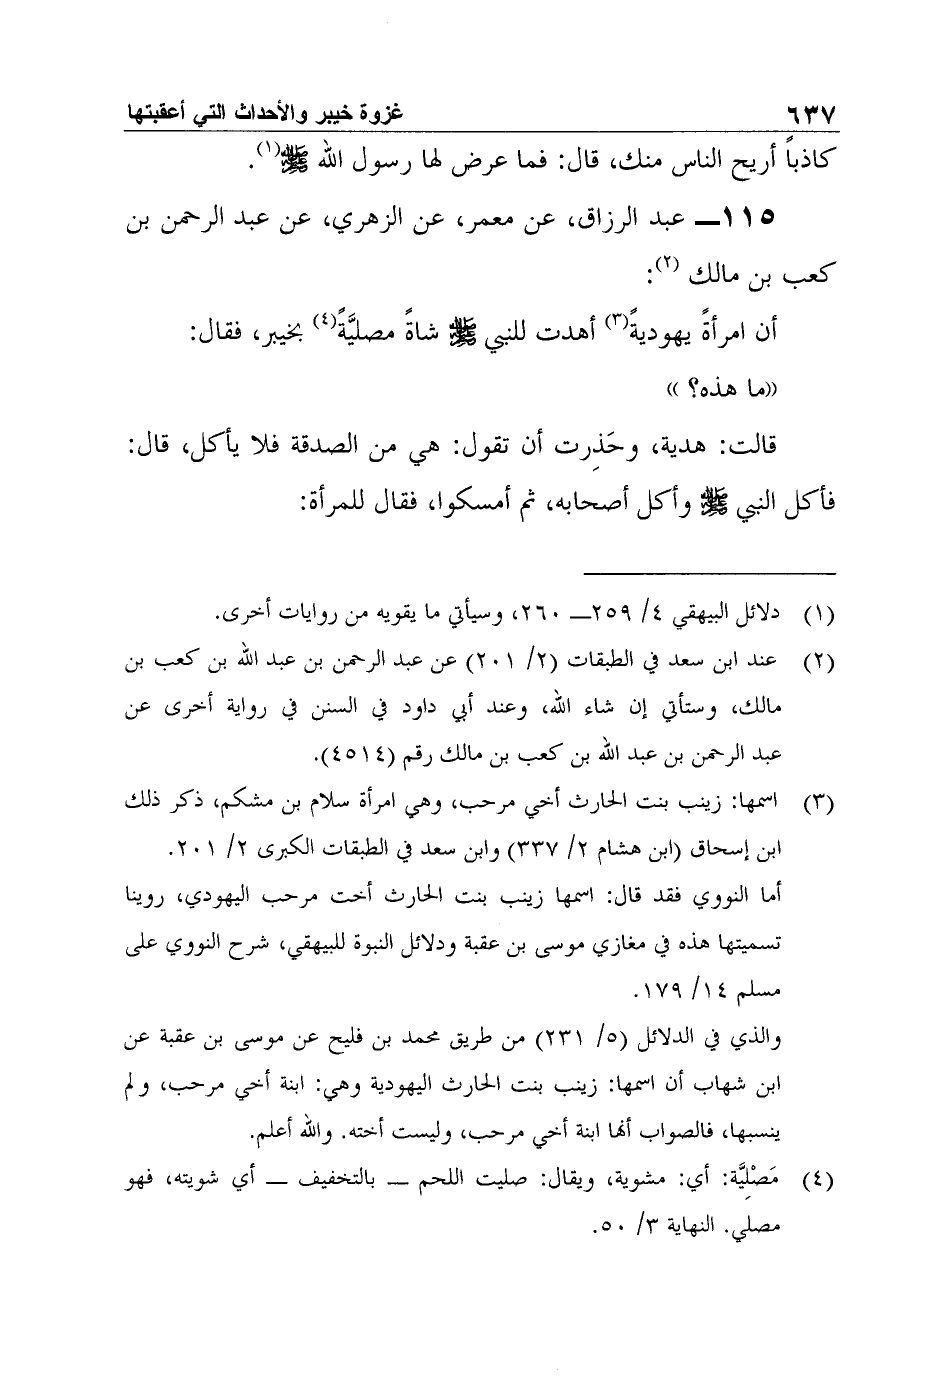 ٦٣٧ غزوة خيبر والأحداث التي أعقبتها
كاذباً أريح الناس منك، قال: فما عرض لها رسول الله ﷺ(١).
١١٥ــ عبد الرزاق، عن معمر، عن الزهري، عن عبد الرحمن بن
كعب بن مالك (٢):
أن امرأةً يهوديةً(٣) أهدت للنبي ﷺ شاةً مصليَّةً(٤) بخيبر، فقال:
((ما هذه؟ ))
قالت: هدية، وحَذِرت أن تقول: هي من الصدقة فلا يأكل، قال:
فأكل النبي ﷺ وأكل أصحابه، ثم أمسكوا، فقال للمرأة:
(١) دلائل البيهقي ٤/ ٢٥٩ــ ٢٦٠، وسيأتي ما يقويه من روايات أخرى.
(٢) عند ابن سعد في الطبقات (٢/ ٢٠١) عن عبد الرحمن بن عبد الله بن كعب بن
مالك، وستأتي إن شاء الله، وعند أبي داود في السنن في رواية أخرى عن
عبد الرحمن بن عبد الله بن كعب بن مالك رقم (٤٥١٤).
(٣) اسمها: زينب بنت الحارث أخي مرحب، وهي امرأة سلام بن مشكم، ذكر ذلك
ابن إسحاق (ابن هشام ٢/ ٣٣٧) وابن سعد في الطبقات الكبرى ٢/ ٢٠١.
أما النووي فقد قال: اسمها زينب بنت الحارث أخت مرحب اليهودي، روينا
تسميتها هذه في مغازي موسى بن عقبة ودلائل النبوة للبيهقي، شرح النووي على
مسلم ١٤/ ١٧٩.
والذي في الدلائل (٥/ ٢٣١) من طريق محمد بن فليح عن موسى بن عقبة عن
ابن شهاب أن اسمها: زينب بنت الحارث اليهودية وهي: ابنة أخي مرحب، ولم
ينسبها، فالصواب أنها ابنة أخي مرحب، وليست أخته. والله أعلم.
(٤) مَصْلِيَّة: أي: مشوية، ويقال: صليت اللحم ــ بالتخفيف ــ أي شويته، فهو
مصلي. النهاية ٣/ ٥٠.